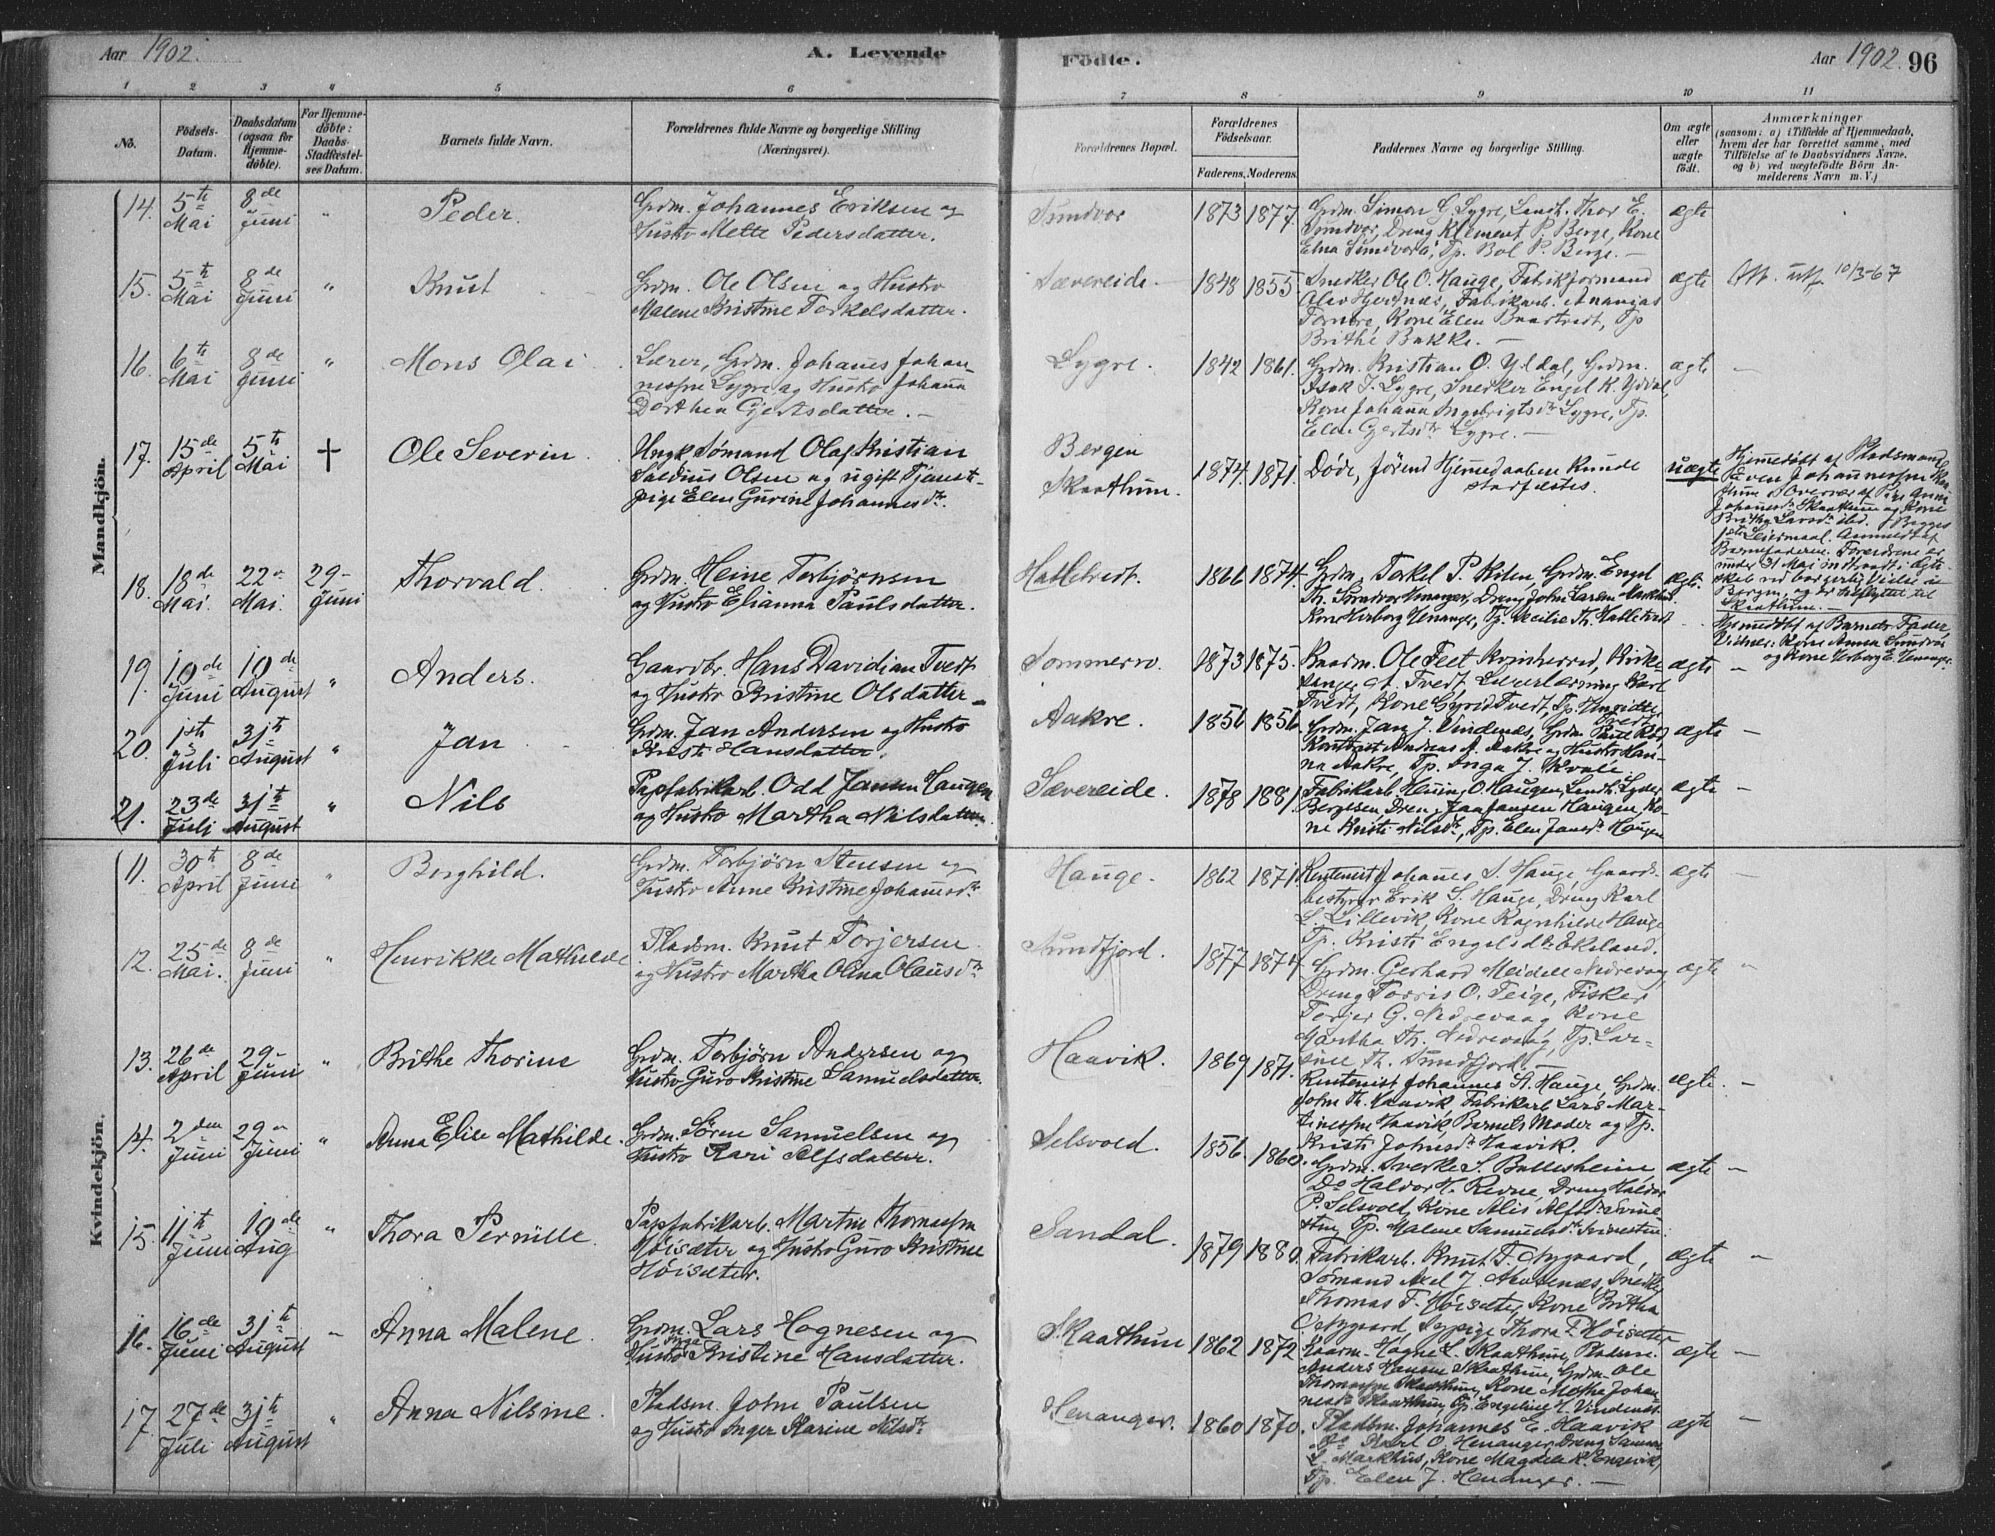 Aar 1902.
A. Levende
Födte.
Aar 1902. 96
1 2 3 4 5 6 7 8 9 10 11
No.
Födsels-
Datum.
Daabsdatum
(ogsaa for
Hjemme-
döbte).
For Hjemme-
döbte:
Daabs-
Stadfæstel-
ses Datum.
Barnets fulde Navn.
Forældrenes fulde Navne og borgerlige Stilling
(Næringsvei).
Forældrenes Bopæl.
Forældrenes
Födselsaar.
Faderens. Moderens.
Faddernes Navne og borgerlige Stilling.
Om ægte
eller
uægte
födt.
Anmærkninger
(saasom: a) i Tilfælde af Hjemmedaab,
hvem der har forrettet samme, med
Tilföielse af to Daabsvidners Navne,
og b) ved uægtefödte Börn An-
melderens Navn m. V.)
Mandkjön.
14. 5th Mai 8de Juni " Peder.
Grdm. Johannes Eriksen og
Hustro Mette Pedersdatter.
Sundvor 1873 1877.
Grdm. Simon G. Lygre, Landh. Thor E.
Sundvor, Dreng Klement P. Berge, Kone
Elna Sundvor, Tp. Bol P. Berge. –
ægte
15. 5th Mai 8de Juni " Knut
Grdm. Ole Olsen og Hustro
Malene Kristine Torkelsdatter.
Sævereide. 1848 1855.
Snedker Ole O. Hauge, Fabrikformand
Olav Gjertnes, Fabrikarb. Ananias
Kone Elen Baartvedt, Tp
Brithe Bakke. –
ægte
Att. utst. 10/3-67
16. 6th Mai 8de Juni " Mons Olai
Lærer, Grdm. Johannes Johan-
nessen Lygre og Hustro Johanna
Dorthea Gjertsdatter. –
Lygre. 1842 1861.
Grdm. Kristian O. Yldal, Grdm.
Isak J. Lygre, Snedker Engel K. Yddal,
Kone Johanna Ingebrigtsdr Lygre, Tp.
Elen Gjertsdr Lygre. –
ægte –
17. 15de April 5th Mai † Ole Severin.
Ungk. Sømand Olaf Kristian
Saldius Olsen og ugift Tjeneste-
pige Elen Gurine Johannesdr.
Bergen
Skaathum. 1874. 1871.
Døde, førend Hjemmedaaben kunde
stadfæstes.
uægte
Hjemmedøbt af Pladsmand
Johannessen Skaa-
thum i Overvær af Pige Anna
Johannesdr Skaathum og Kone
Brithe Larsdr ibd. Begges
1ste Leiermaal. Anmeldt af
Barnefaderen. Forældrene er
under 31 Mai indtraadt i Ægte-
skab ved borgerlig Vielse i
Bergen, og er tilflyttet til
Skaathum. –
18. 18de Mai. 22de Mai. 29– Juni Thorvald.
Grdm. Heine Torbjørnsen
og Hustro Elianna Paulsdatter.
Hatletvedt. 1866 1874.
Grdm. Torkel P. Kilen, Grdm. Engel
Th. Sundvor Venanger, Dreng John Larsen Markhus
Kone Herborg Venanger, Tp. Cecilie Th. Hatletvedt
ægte.
Hjemmedøbt af Barnets Fader.
Vidner: Kone Anna Sundvor
og Kone Herborg E. Venanger.
19. 10de Juni 10de August " Anders.
Gaardbr. Hans Davidian Tvedt
og Hustro Kristine Olsdatter –
Sommerro. 1873 1875.
Kaarm. Ole Feet Kvinherred, Kirke
sanger A. Tvedt, Lærerlærning Karl
Tvedt, Kone Gyrid Tvedt, Tp.
Tvedt
ægte –
20. 1ste Juli 31th August " Jan
Grdm. Jan Andersen og Hustro
Kristi Hansdatter
Aakre. 1856 1856.
Grdm. Jan J. Vindenes, Grdm.
Kontorist Andreas A. Aakre og Hustro Han-
na Aakre, Tp. Inga J. Kvale
ægte –
21. 23de Juli 31th August " Nils
Papfabrikarb. Odd Jansen Haugen
og Hustro Martha Nilsdatter.
Sævereide. 1878 1881.
Fabrikarb. Helning O. Haugen, Landh. Lyder
Bergesen, Dreng Jan Jansen Haugen, Ko-
ne Kristi Nilsdr, Tp. Elen Jansdr Haugen
ægte –
Kvindekjön.
11. 30th April 8de Juni " Borghild.
Grdm. Torbjørn Stensen og
Hustro Anne Kristine Johannesdr
Hauge. 1862 1871.
Rentenist Johanes S. Hauge, Gaards-
bestyrer Erik S. Hauge, Dreng Karl
L. Lillevik, Kone Ragnhilde Hauge
Tp. Kristi Engelsdr Ekeland.
ægte –
12. 25de Mai. 8de Juni " Henrikke Mathilde
Pladsm. Knut Torjersen
og Hustro Martha Olina Olausdr
Sundfjord. 1877 1874
Grdm. Gerhard Meidell Nedrevaag,
Dreng Torris O. Teige, Fisker
Torjer G. Nedrevaag, Kone
Martha Th. Nedrevaag, Tp. Lar-
sine Th. Sundfjord. –
ægte "
13. 26de April 29– Juni " Brithe Thorine
Grdm. Torbjørn Andersen og
Hustro Guro Kristine Samuelsdatter.
Haavik. 1869 1871.
Rentenist Johannes St. Hauge, Grdm.
John Th. Haavik, Fabrikarb. Lars Mar-
tinessen Haavik, Barnets Moder og Tp.
Kristi Johnsdr Haavik.
ægte. –
14. 2den Juni 29– Juni " Anna Elise Mathilde.
Grdm. Sören Samuelsen og
Hustro Kari Alfsdatter.
Selsvold. 1856 1860.
Grdm. Sverke S. Battesheim,
Do Haldor H. Revne, Dreng Haldor
P. Selsvold, Kone Alis Alfsdr
Tp. Malene Samuelsdr
ægte –
15. 11th Juni 10de Aug " Thora Pernille.
Papfabrikarb. Martin Thomassen
Høisæter og Hustro Guro Kristine
Høisæter.
Sandal. 1879 1880.
Fabrikarb. Knut F. Nygaard,
Sømand Axel J. Snedker
Thomas T. Høisæter, Kone Britha
Nygaard, Thora T. Høisæter
ægte "
16. 16de Juni 31th August " Anna Malene.
Grdm. Lars Hognesen og
Hustro Inga Kristine Hansdatter.
Skaathum 1862 1872
Kaarm. Hogne L. Skaathum, Pladsm.
Anders Hansen Skaathum, Grdm. Ole
Thomassen Skaathum, Kone Marthe Johan-
nesdr Skaathum, Tp. Engeline H. Vindenes.
ægte –
17. 27de Juli 31th August " Anna Nilsine.
Pladsm. John Paulsen
og Hustro Inger Karine Nilsdr
Henanger. 1860 1870.
Pladsm. Johannes E. Haavik
Do Karl O. Henanger, Dreng
L. Markhus, Kone Magdela K. Engevik,
Tp. Elen J. Henanger. –
ægte –